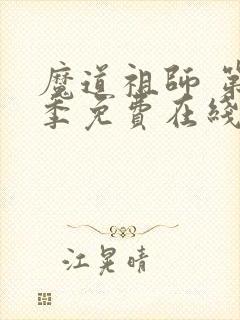 魔道祖師 第
季免費在綫
江晃晴